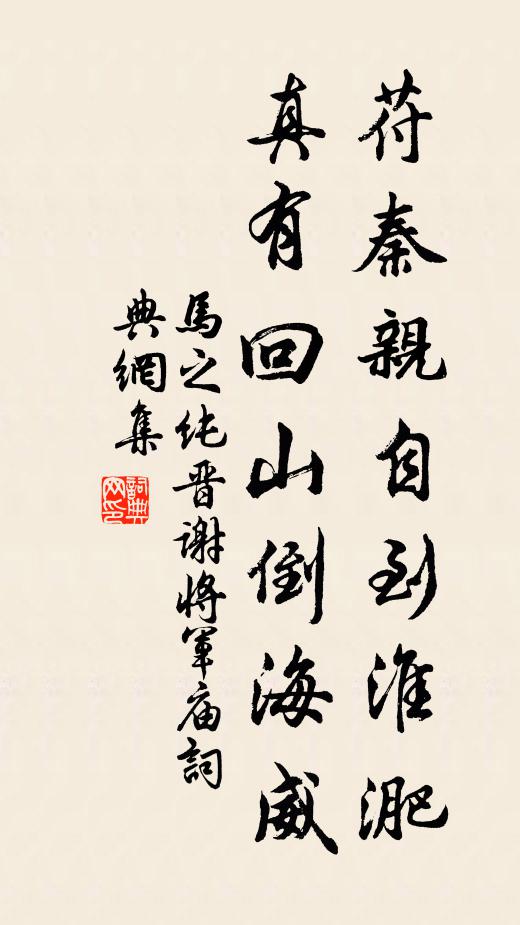 苻秦親自到淮淝
真有回山倒海威
馬之纯晋謝將軍庙詞
典網集
詞典网印